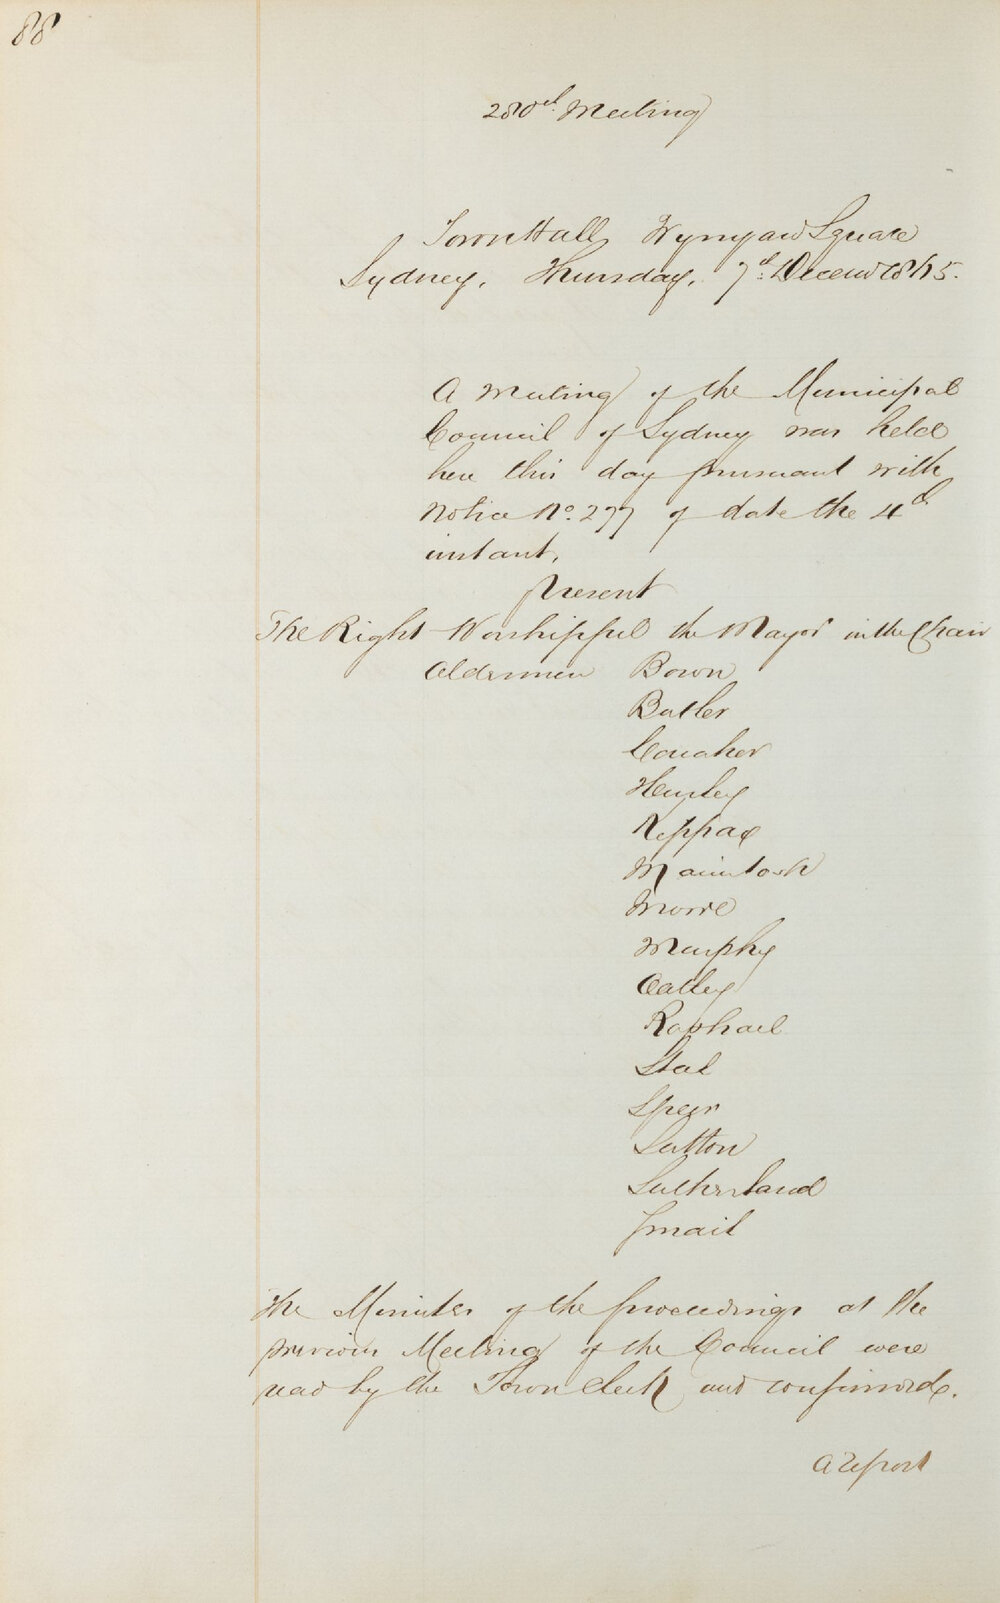 88
280th Meeting
Town Hall Wynyard Square
Sydney, Thursday, 7th Decem 1865.
A Meeting of the Municipal
Council of Sydney was held
here this day pursuant with
Notice No. 277 of date the 4th
instant,
Present
The Right Worshipful the Mayor in the Chair
Aldermen Bown
Butler
Conaher
Hurley
Kippax
Macintosh
Moore
Murphy
Oatley
Raphael
Speer
Sutton
Sutherland
Smail
The Minutes of the proceedings at the
previous Meeting of the Council were
read by the Town Clerk and confirmed.
A report